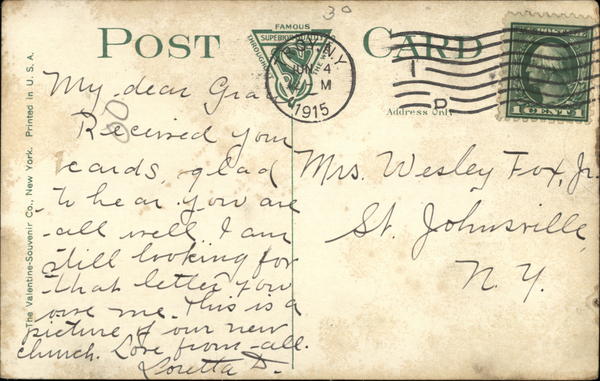 30
POST CARD
FAMOUS
THROUGHOUT
SUPERIOR QUALITY
THE WORLD
VS
TROY, N.Y.
JUN 4
M
1915
1
D
1 CENT 1
Address Only
The Valentine-Souvenir Co., New York. Printed in U.S.A.
80
My dear Gra
Received your
cards, glad
to hear you are
all well. I am
still looking for
that letter you
owe me. This is a
picture of our new
church. Love from all.
Loretta D.
Mrs. Wesley Fox, Jr.
St. Johnsville
N.Y.